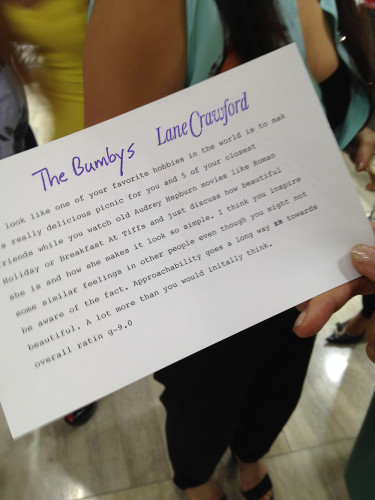 The Bumbys Lane Crawford
look like one of your favorite hobbies in the world is to mak
a really delicious picnic for you and 5 of your closest
friends while you watch old Audrey Hepburn movies like Roman
Holiday or Breakfast At Tiffs and just discuss how beautiful
she is and how she makes it look so simple. I think you inspire
some similar feelings in other people even though you might not
be aware of the fact. Approachability goes a long way towards
beautiful. A lot more than you would initally think.
overall ratin g-9.0